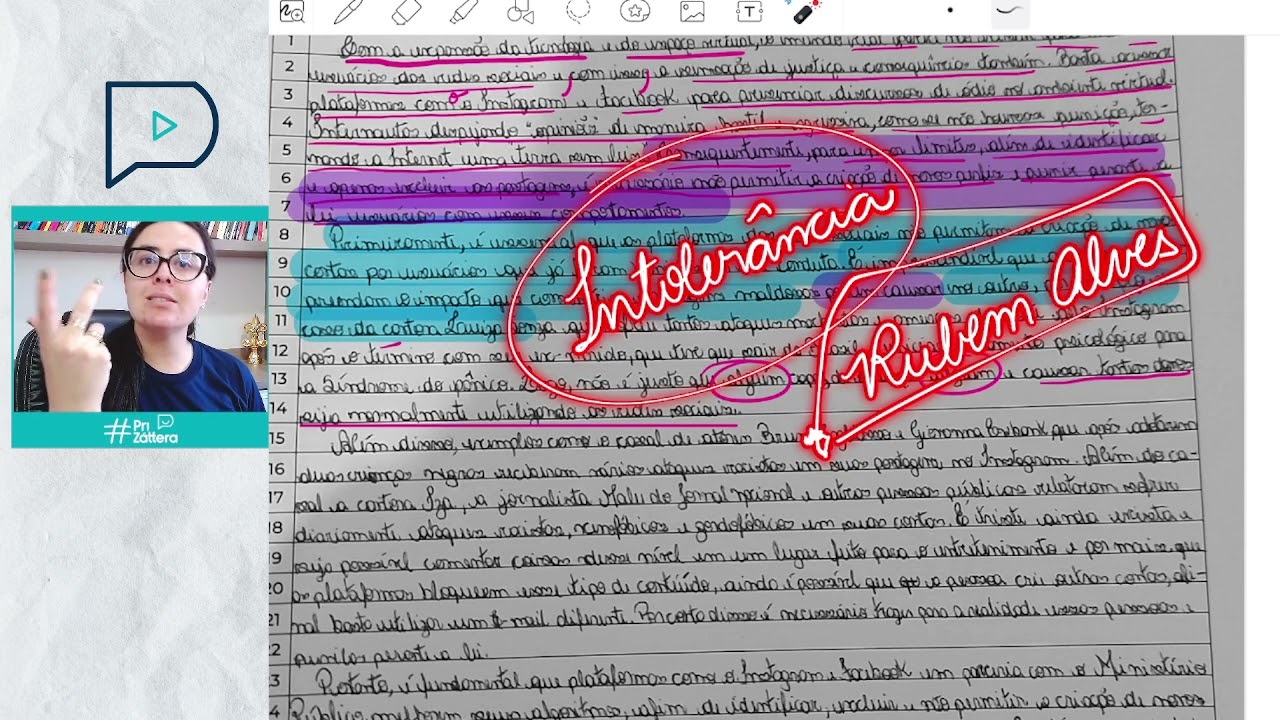 1 Com a expansão da tecnologia e do espaço virtual, o mundo
2 usuários das redes sociais e com isso, a sensação de justiça e consequência também. Basta acessar
3 plataformas como o Instagram e Facebook para presenciar discursos de ódio no ambiente virtual.
4 Internautas despejando "opinião" de maneira hostil e agressiva, como se não houvesse punição, tor-
5 nando a Internet uma terra sem lei. Consequentemente, para impor limites, além de identificar
6 e apenas excluir as postagens, é necessário não permitir a criação de novos perfis e punir perante a
7 lei usuários com esses comportamentos.
8 Primeiramente, é essencial que as plataformas das sociais não permitam a criação de novas
9 contas por usuários que já conduta. É imprescindível que
10 o impacto que maldosas podem causar nos outros,
11 caso da cantora Luiza Sonza que tantos ataques Instagram
12 após o término com seu ex-marido, que teve que sair do psicológico para
13 a Síndrome do pânico. Logo, não é justo que alguém e causar tantos danos
14 seja normalmente utilizando as redes sociais.
15 Além disso, exemplos como o casal de atores e Giovanna Ewbank, que após adotarem
16 duas crianças negras receberam vários ataques racistas em suas postagens no Instagram. Além do ca-
17 sal a cantora Iza, a jornalista Maju do Jornal Nacional e outras pessoas públicas relataram sofrer
18 diariamente ataques racistas, xenofóbicos e gordofóbicos em suas contas. É triste ainda
19 seja possível comentar coisas desse nível em um lugar feito para o entretenimento e por mais que
20 as plataformas bloqueem esse tipo de conteúdo, ainda é possível que a pessoa crie outras contas, afi-
21 nal basta utilizar um e-mail diferente. Por certo disso é necessário trazer para a realidade essas pessoas e
2 puni-las perante a lei.
3 Portanto, é fundamental que plataformas como o Instagram e Facebook em parceria com o Ministério
4 Público melhorem seus algoritmos, afim de identificar, excluir e não permitir a criação de novos
Intolerância
Rubem Alves
#Pri
Záttera